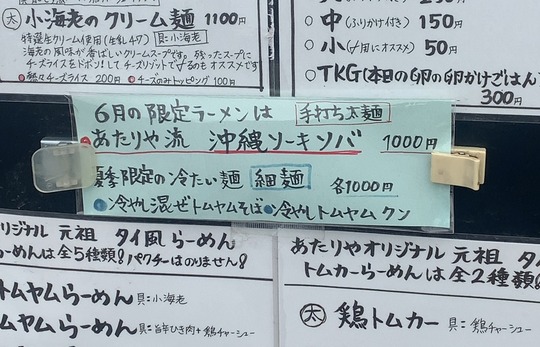 太 小海老のクリーム麺 1100円
特選生クリーム使用(生乳47) 具:小海老
海老の風味が香ばしいクリームスープです。残ったスープに
チーズライスをドボン!してチーズリゾットで〆るのもオススメです
チーズライス 200円 ●チーズのみトッピング 100円
○中(ふりかけ付き) 150円
○小(〆用にオススメ) 50円
○TKG(本日の卵の卵かけごはん)
300円
6月の限定ラーメンは 手打ち太麺
●あたりや流 沖縄ソーキソバ 1000円
夏季限定の冷たい麺 細麺 各1000円
●冷やし混ぜトムヤムそば ●冷やしトムヤムクン
オリジナル 元祖 タイ風らーめん
らーめんは全5種類!パクチーはのりません!
トムヤムらーめん 具:小海老
トムヤムらーめん 具:旨辛ひき肉+鶏チャーシュー
あたりやオリジナル 元祖 タイ
トムカーらーめんは全2種類!
太 鶏トムカー 具:鶏チャーシュー